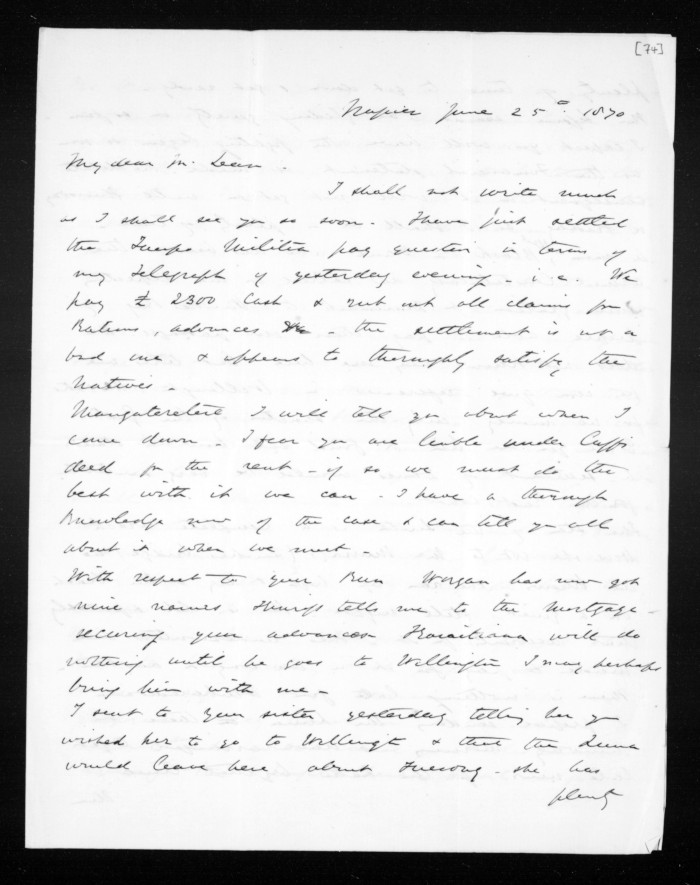 [74]
Napier June 25th 1870
My dear Mr. Lean.
I shall not write much
as I shall see you so soon. I have just settled
the Militia pay question in terms of
my Telegraph of yesterday evening - i.e. We
pay £2300 Cash & rub out all claims for
Rations, advances &c - the settlement is not a
bad one & appears to thoroughly satisfy the
Natives.
Mangateretere I will tell you about when I
come down - I fear you are liable under Cuffs
deed for the rent - if so we must do the
best with it we can. I have a thorough
Knowledge now of the case & can tell you all
about it when we meet
With respect to your Run Worgan has now got
nine names tells me to the Mortgage -
securing your advances Karaitiana will do
nothing until he goes to Wellington I may perhaps
bring him with me -
I sent to your sister yesterday telling her you
wished her to go to Wellingt & that the Luna
would leave here about Tuesday - she has
plenty